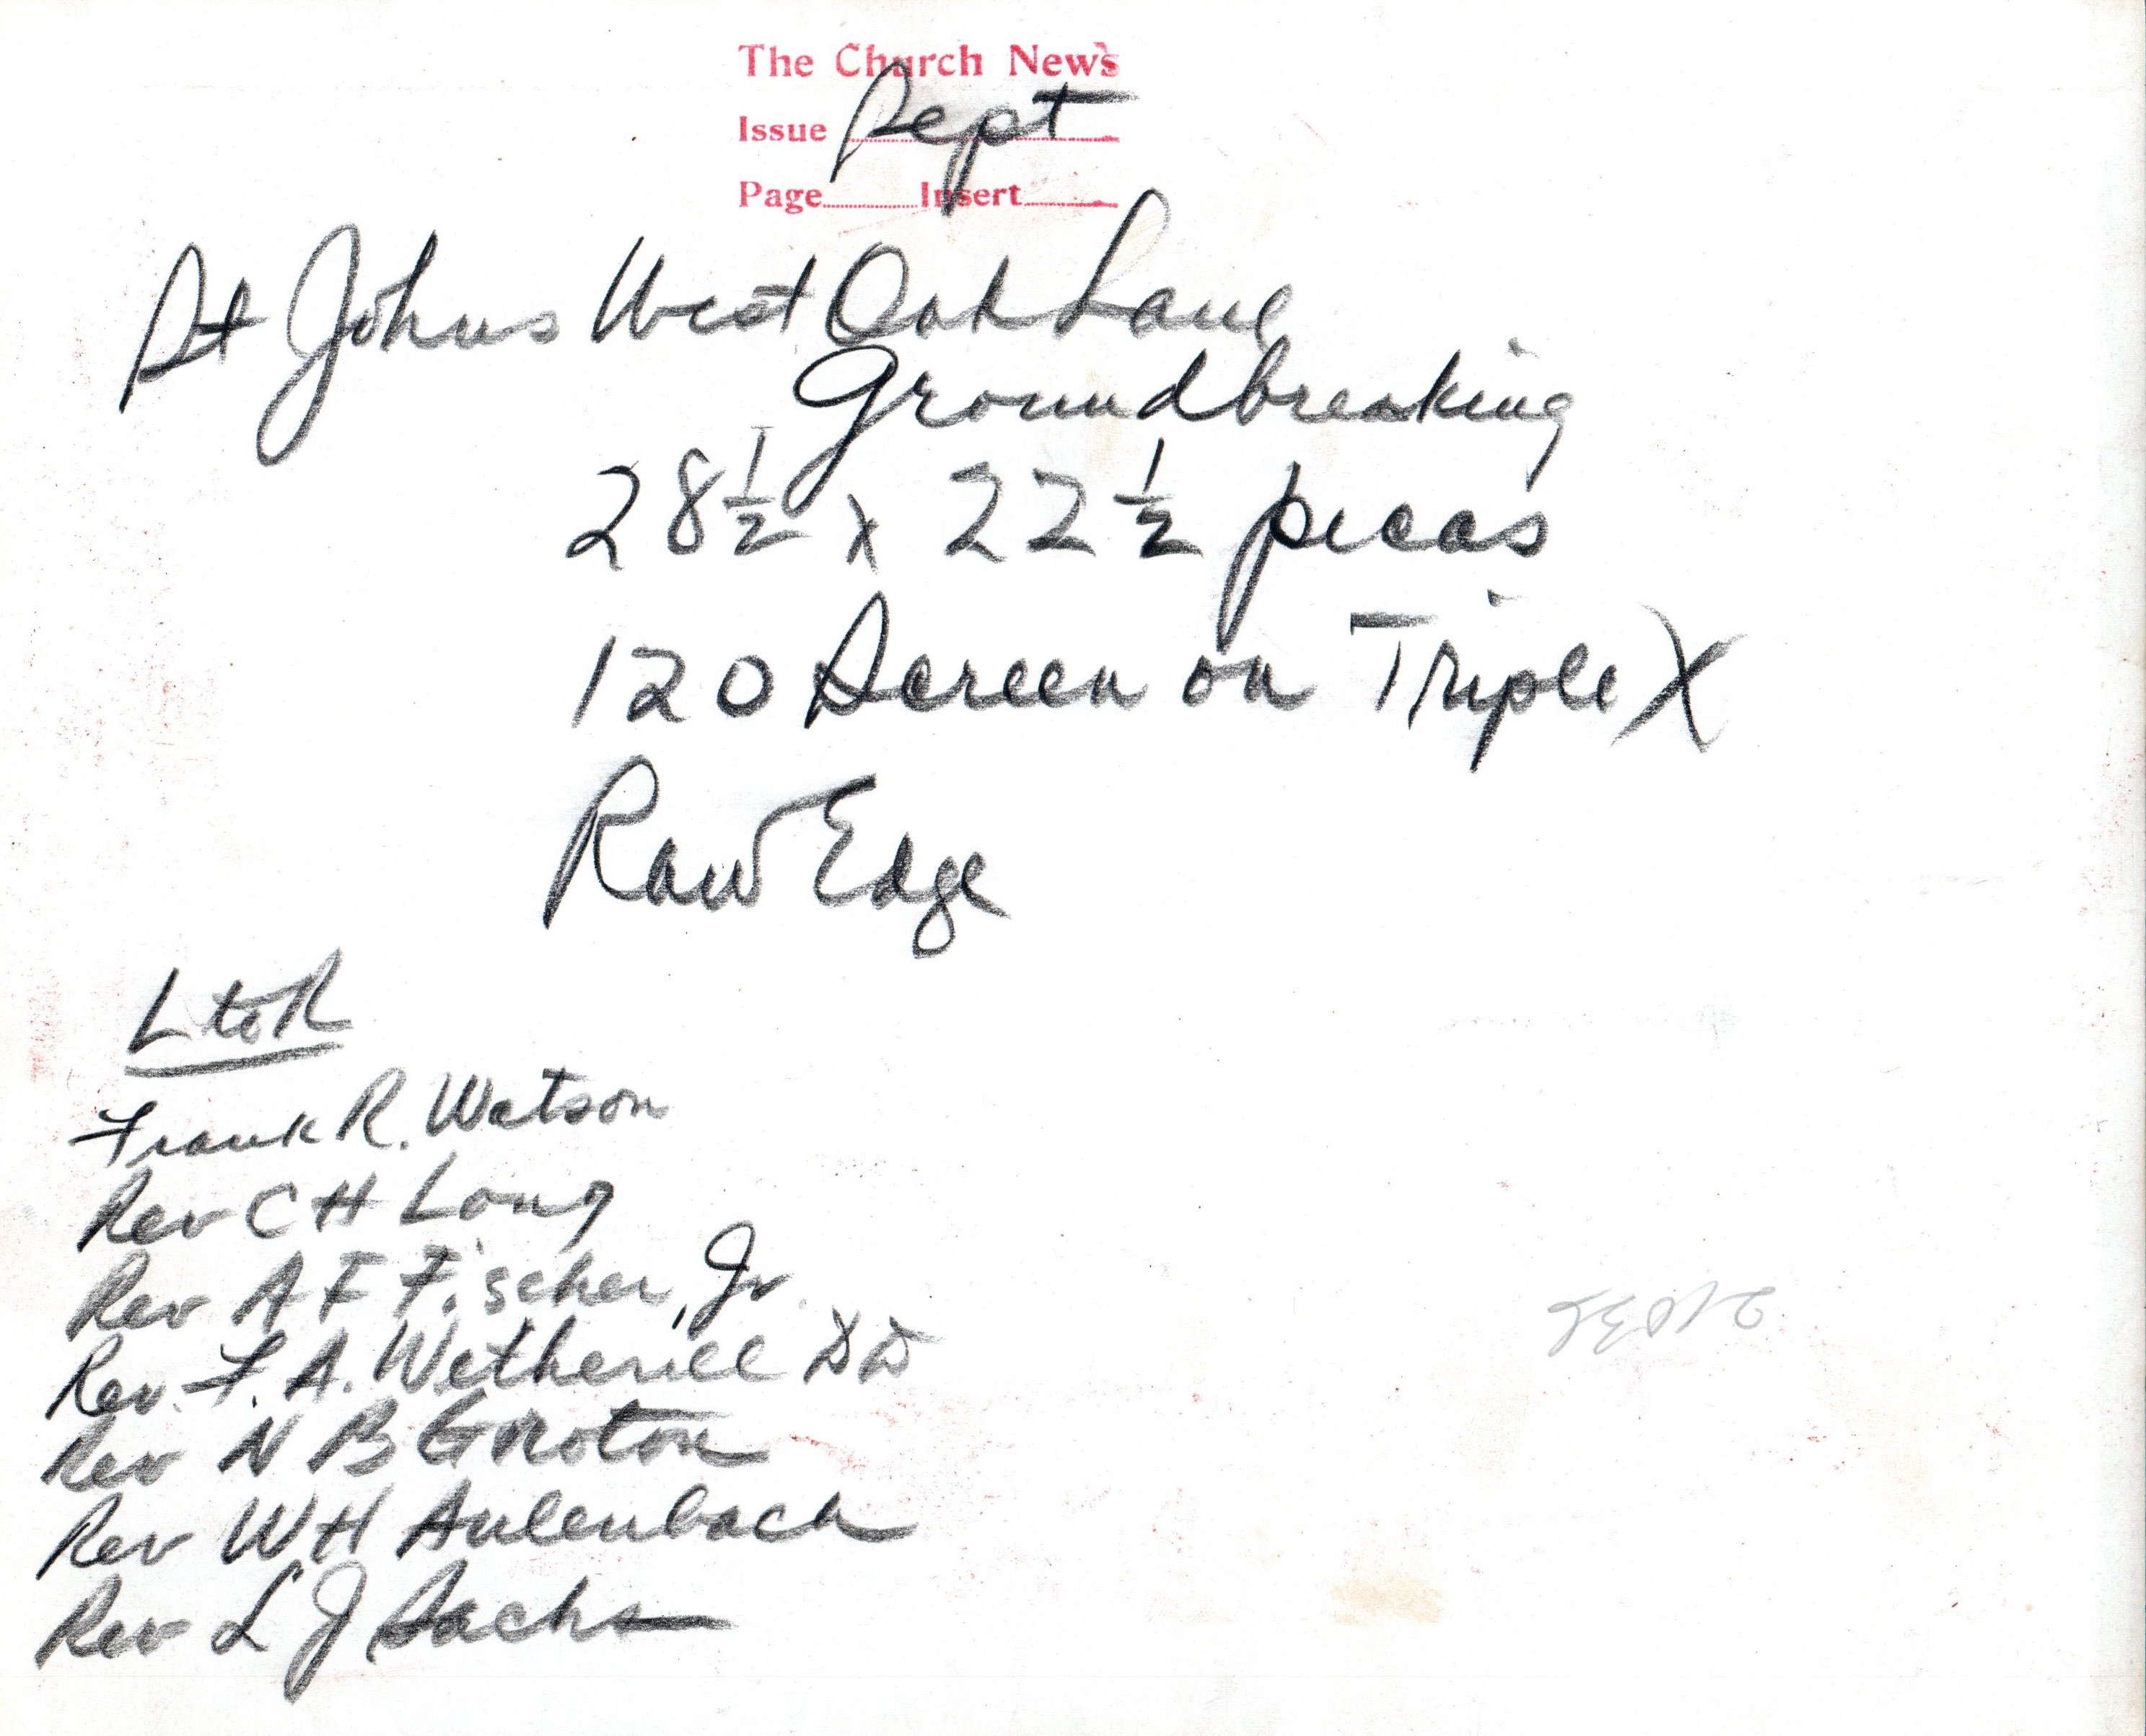 The Church News
Issue Sept
Page Insert
St Johns West Oak Lane
Groundbreaking
28 1/2 x 22 1/2 picas
120 Screen on Triple X
Raw Edge
L to R
Frank R. Watson
Rev C H Long
Rev A F Fischer, Jr.
Rev. F. A. Wetherill DD
Rev N B Groton
Rev W H Aulenbach
Rev L J Sachs